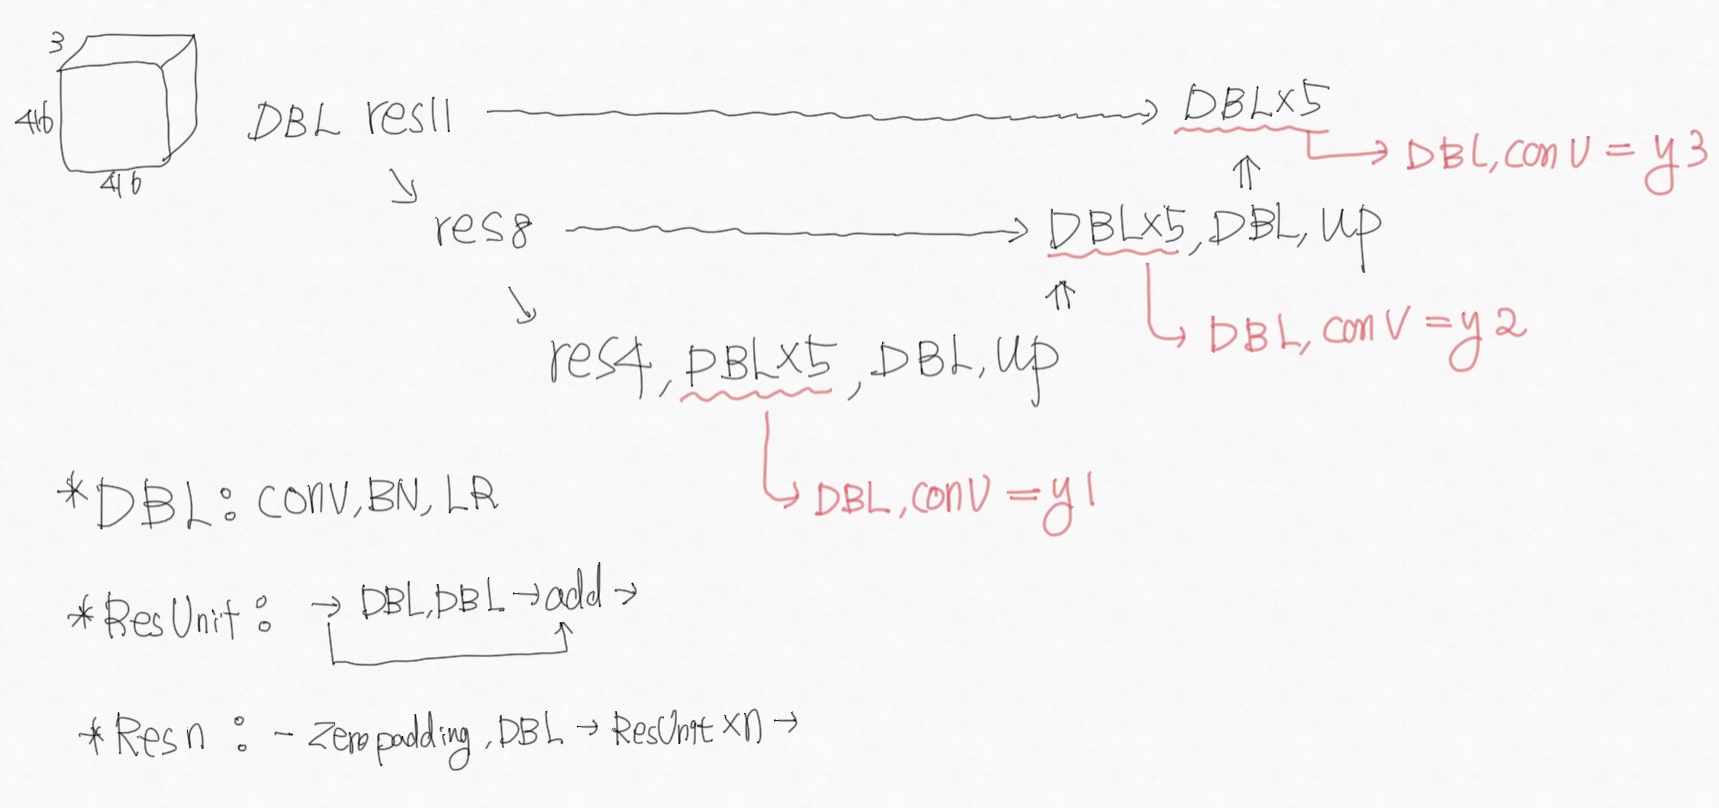 3
416
416
DBL res11 → DBLx5
→ DBL, conv = y3
res8 → DBLx5, DBL, up
→ DBL, conv = y2
res4, DBLx5, DBL, up
→ DBL, conv = y1
*DBL: conv, BN, LR
*ResUnit: → DBL, DBL → add →
*Resn: - Zero padding, DBL → ResUnit xn →